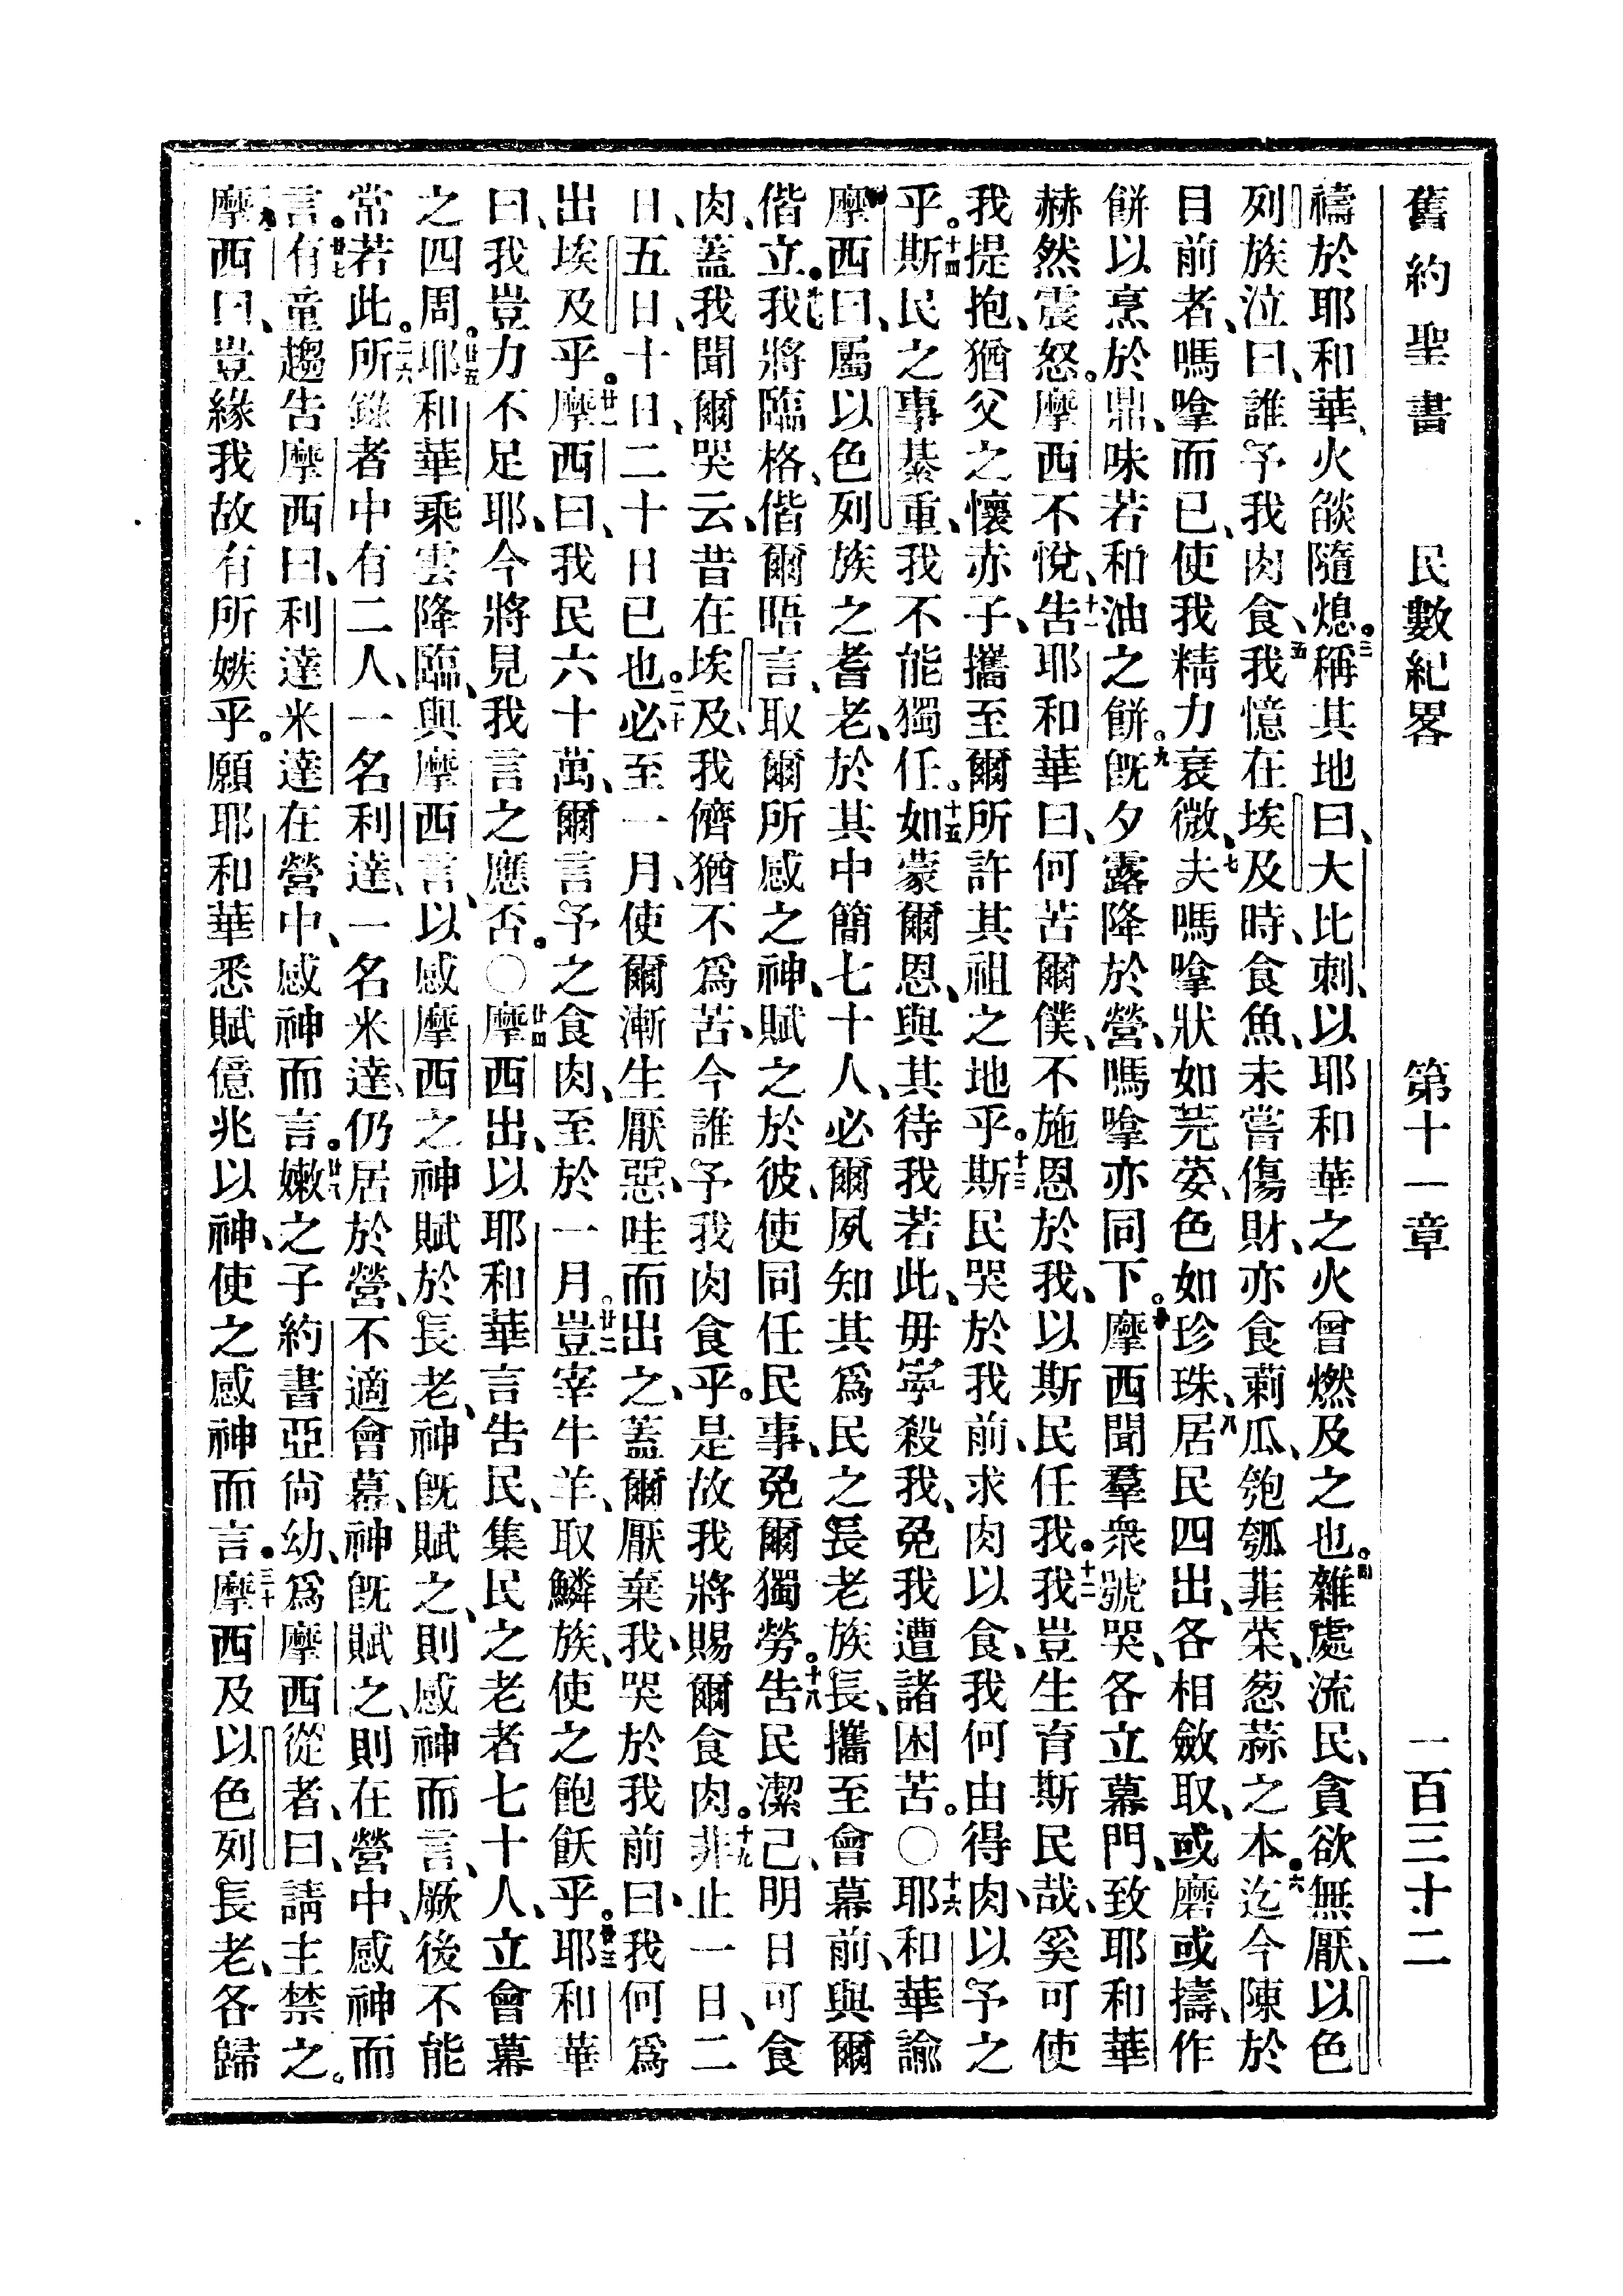 舊約聖書 民數紀畧 第十一章 一百三十二
禱於耶和華、火燄隨熄。三稱其地曰、大比刺、以耶和華之火曾燃及之也。四雜處流民、貪欲無厭、以色
列族泣曰、誰予我肉食、五我憶在埃及時、食魚、未嘗傷財、亦食蔌瓜、匏瓠韮菜、葱蒜之本。六迄今陳於
目前者、嗎嗱而已、使我精力衰微、七夫嗎嗱狀如芫荽、色如珍珠、八居民四出、各相斂取、或磨或擣、作
餅以烹於鼎、味若和油之餅。九旣夕露降於營、嗎嗱亦同下。十摩西聞羣衆號哭、各立幕門、致耶和華
赫然震怒。摩西不悅、十一告耶和華曰、何苦爾僕、不施恩於我、以斯民任我。十二我豈生育斯民哉、奚可使
我提抱、猶父之懷赤子、攜至爾所許其祖之地乎。十三斯民哭於我前、求肉以食、我何由得肉、以予之
乎。十四斯民之事綦重、我不能獨任。十五如蒙爾恩、與其待我若此、毋寧殺我、免我遭諸困苦。〇十六耶和華諭
摩西曰、屬以色列族之耆老、於其中簡七十人、必爾夙知其爲民之長老族長、攜至會幕前、與爾
偕立。十七我將臨格、偕爾晤言、取爾所感之神、賦之於彼、使同任民事、免爾獨勞。十八告民潔己、明日可食
肉、蓋我聞爾哭云、昔在埃及、我儕猶不爲苦、今誰予我肉食乎。是故我將賜爾食肉。十九非止一日、二
日、五日、十日、二十日已也。二十必至一月、使爾漸生厭惡、哇而出之、蓋爾厭棄我、哭於我前曰、我何爲
出埃及乎。廿一摩西曰、我民六十萬、爾言予之食肉、至於一月。廿二豈宰牛羊、取鱗族、使之飽飫乎。廿三耶和華
曰、我豈力不足耶、今將見我言之應否。〇廿四摩西出、以耶和華言告民、集民之老者七十人、立會幕
之四周。廿五耶和華乘雲降臨、與摩西言、以感摩西之神賦於長老、神旣賦之、則感神而言、厥後不能
常若此。二六所錄者中有二人、一名利達、一名米達、仍居於營、不適會幕、神旣賦之、則在營中、感神而
言。廿七有童趨告摩西曰、利達米達在營中、感神而言。廿八嫩之子約書亞尙幼、爲摩西從者、曰、請主禁之。
廿九摩西曰、豈緣我故有所嫉乎。願耶和華悉賦億兆以神、使之感神而言。三十摩西及以色列長老、各歸